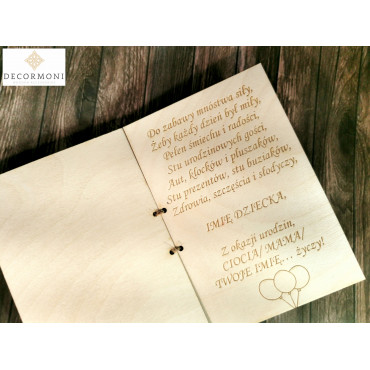 DECORMONI
Do zabawy mnóstwa siły,
Żeby każdy dzień był miły,
Pełen śmiechu i radości,
Stu urodzinowych gości,
Aut, klocków i pluszaków,
Stu prezentów, stu buziaków,
Zdrowia, szczęścia i słodyczy,
IMIĘ DZIECKA,
Z okazji urodzin,
CIOCIA/ MAMA/
TWOJE IMIĘ,... życzy!